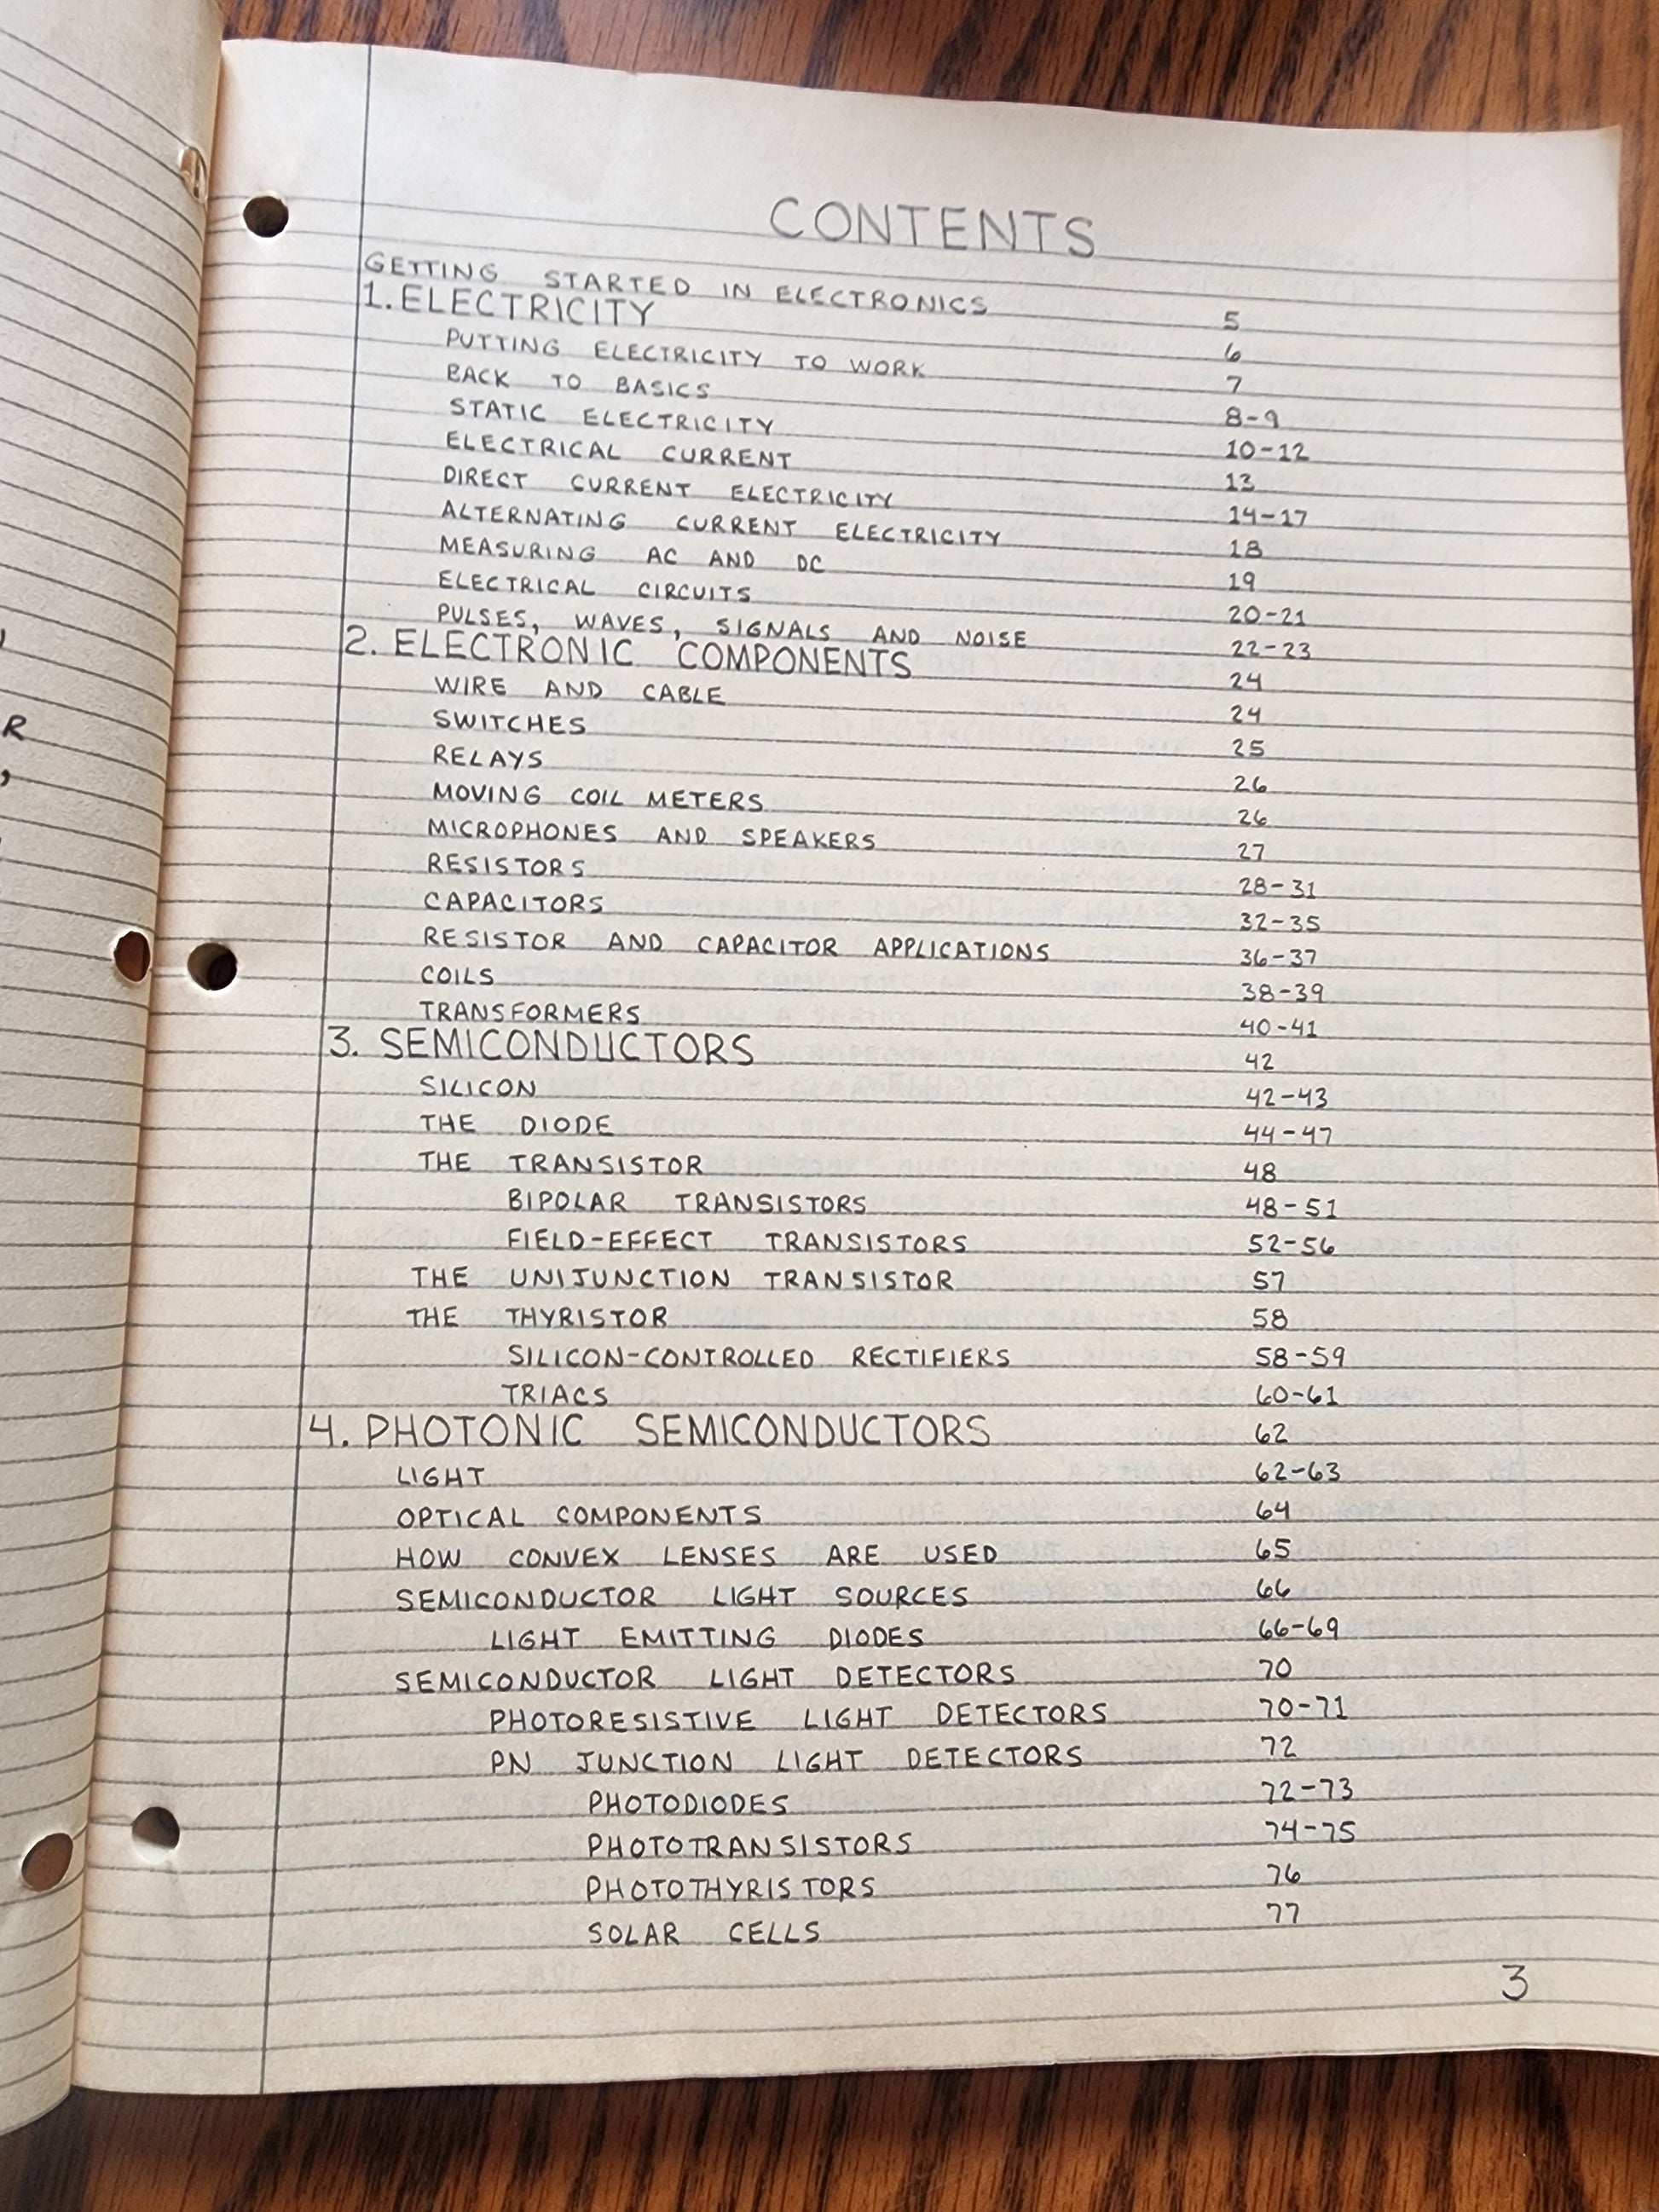 CONTENTS
GETTING STARTED IN ELECTRONICS 5
1. ELECTRICITY 6
PUTTING ELECTRICITY TO WORK 7
BACK TO BASICS 8-9
STATIC ELECTRICITY 10-12
ELECTRICAL CURRENT 13
DIRECT CURRENT ELECTRICITY 14-17
ALTERNATING CURRENT ELECTRICITY 18
MEASURING AC AND DC 19
ELECTRICAL CIRCUITS 20-21
PULSES, WAVES, SIGNALS AND NOISE 22-23
2. ELECTRONIC COMPONENTS 24
WIRE AND CABLE 24
SWITCHES 25
RELAYS 26
MOVING COIL METERS 26
MICROPHONES AND SPEAKERS 27
RESISTORS 28-31
CAPACITORS 32-35
RESISTOR AND CAPACITOR APPLICATIONS 36-37
COILS 38-39
TRANSFORMERS 40-41
3. SEMICONDUCTORS 42
SILICON 42-43
THE DIODE 44-47
THE TRANSISTOR 48
BIPOLAR TRANSISTORS 48-51
FIELD-EFFECT TRANSISTORS 52-56
THE UNIJUNCTION TRANSISTOR 57
THE THYRISTOR 58
SILICON-CONTROLLED RECTIFIERS 58-59
TRIACS 60-61
4. PHOTONIC SEMICONDUCTORS 62
LIGHT 62-63
OPTICAL COMPONENTS 64
HOW CONVEX LENSES ARE USED 65
SEMICONDUCTOR LIGHT SOURCES 66
LIGHT EMITTING DIODES 66-69
SEMICONDUCTOR LIGHT DETECTORS 70
PHOTORESISTIVE LIGHT DETECTORS 70-71
PN JUNCTION LIGHT DETECTORS 72
PHOTODIODES 72-73
PHOTOTRANSISTORS 74-75
PHOTOTHYRISTORS 76
SOLAR CELLS 77
3